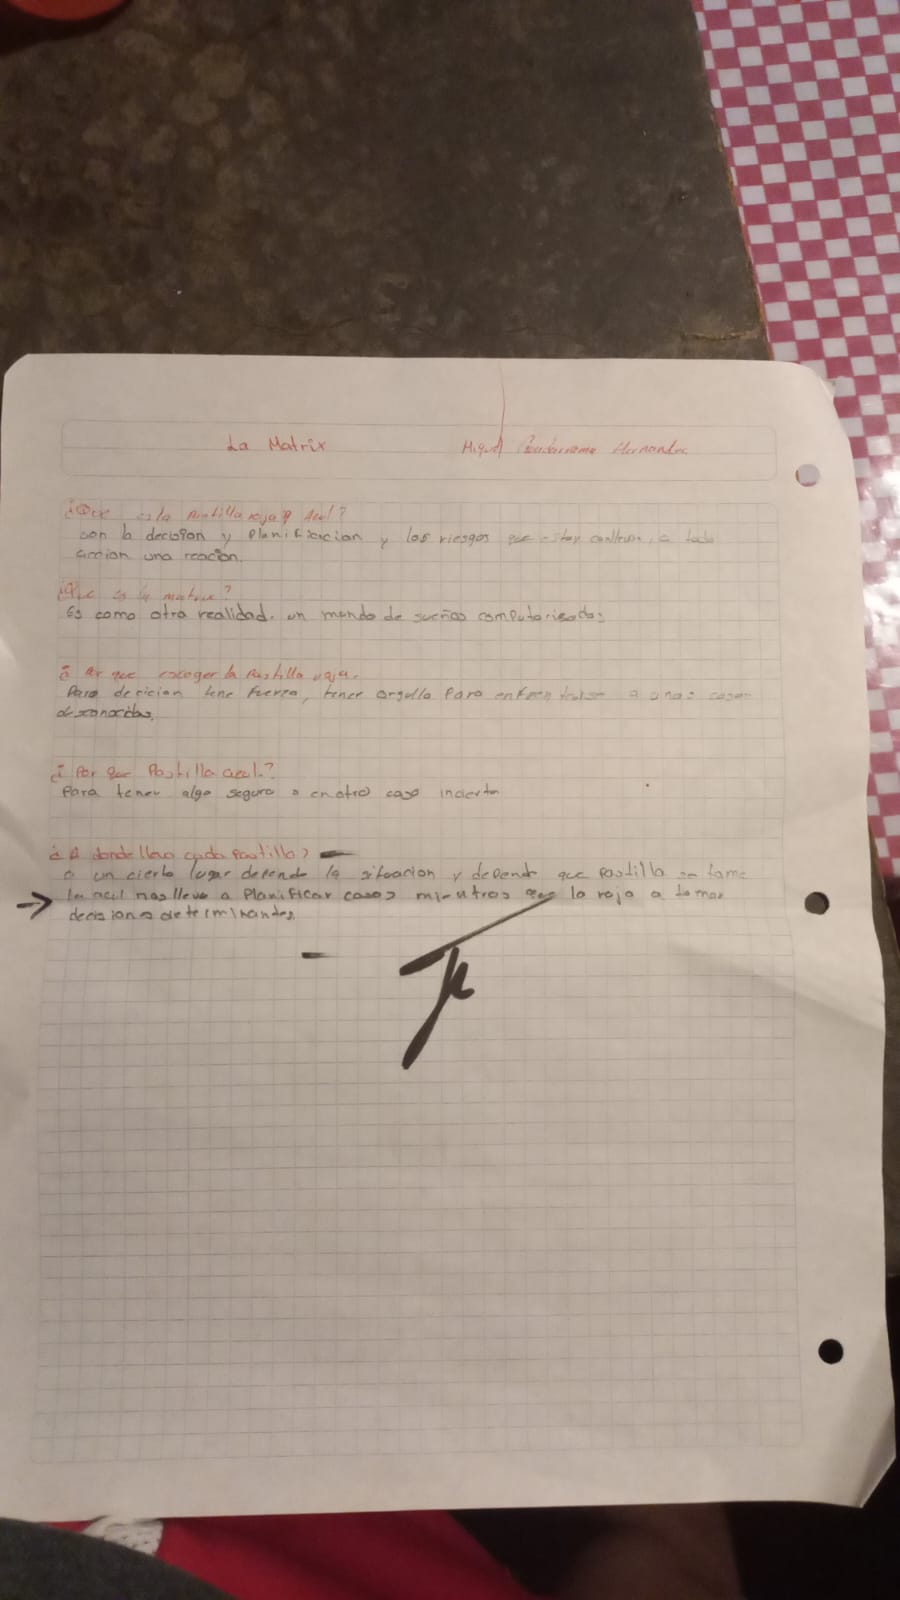 La Matrix
Miguel Hernandez
¿Que es la Pastilla roja y Azul?
son la decision y planificicion y los riesgos que estoy conlleva, a toda
accion una reacion.
¿Que es la matrix?
Es como otra realidad. un mundo de sueños computarizados
Por que escoger la Pastilla roja.
Para decicion tene fuerza, tener orgullo Para enfrentarse a unas cosas
desconocidas.
¿ Por que Pastilla azul.?
Para tener algo seguro o en otro caso incierto
¿ A donde lleva cada Pastilla?
a un cierto lugar depende la situacion y depende que pastilla se tome
la azul nos lleva a Planificar casos mientras que la roja a tomar
decisiones determinantes